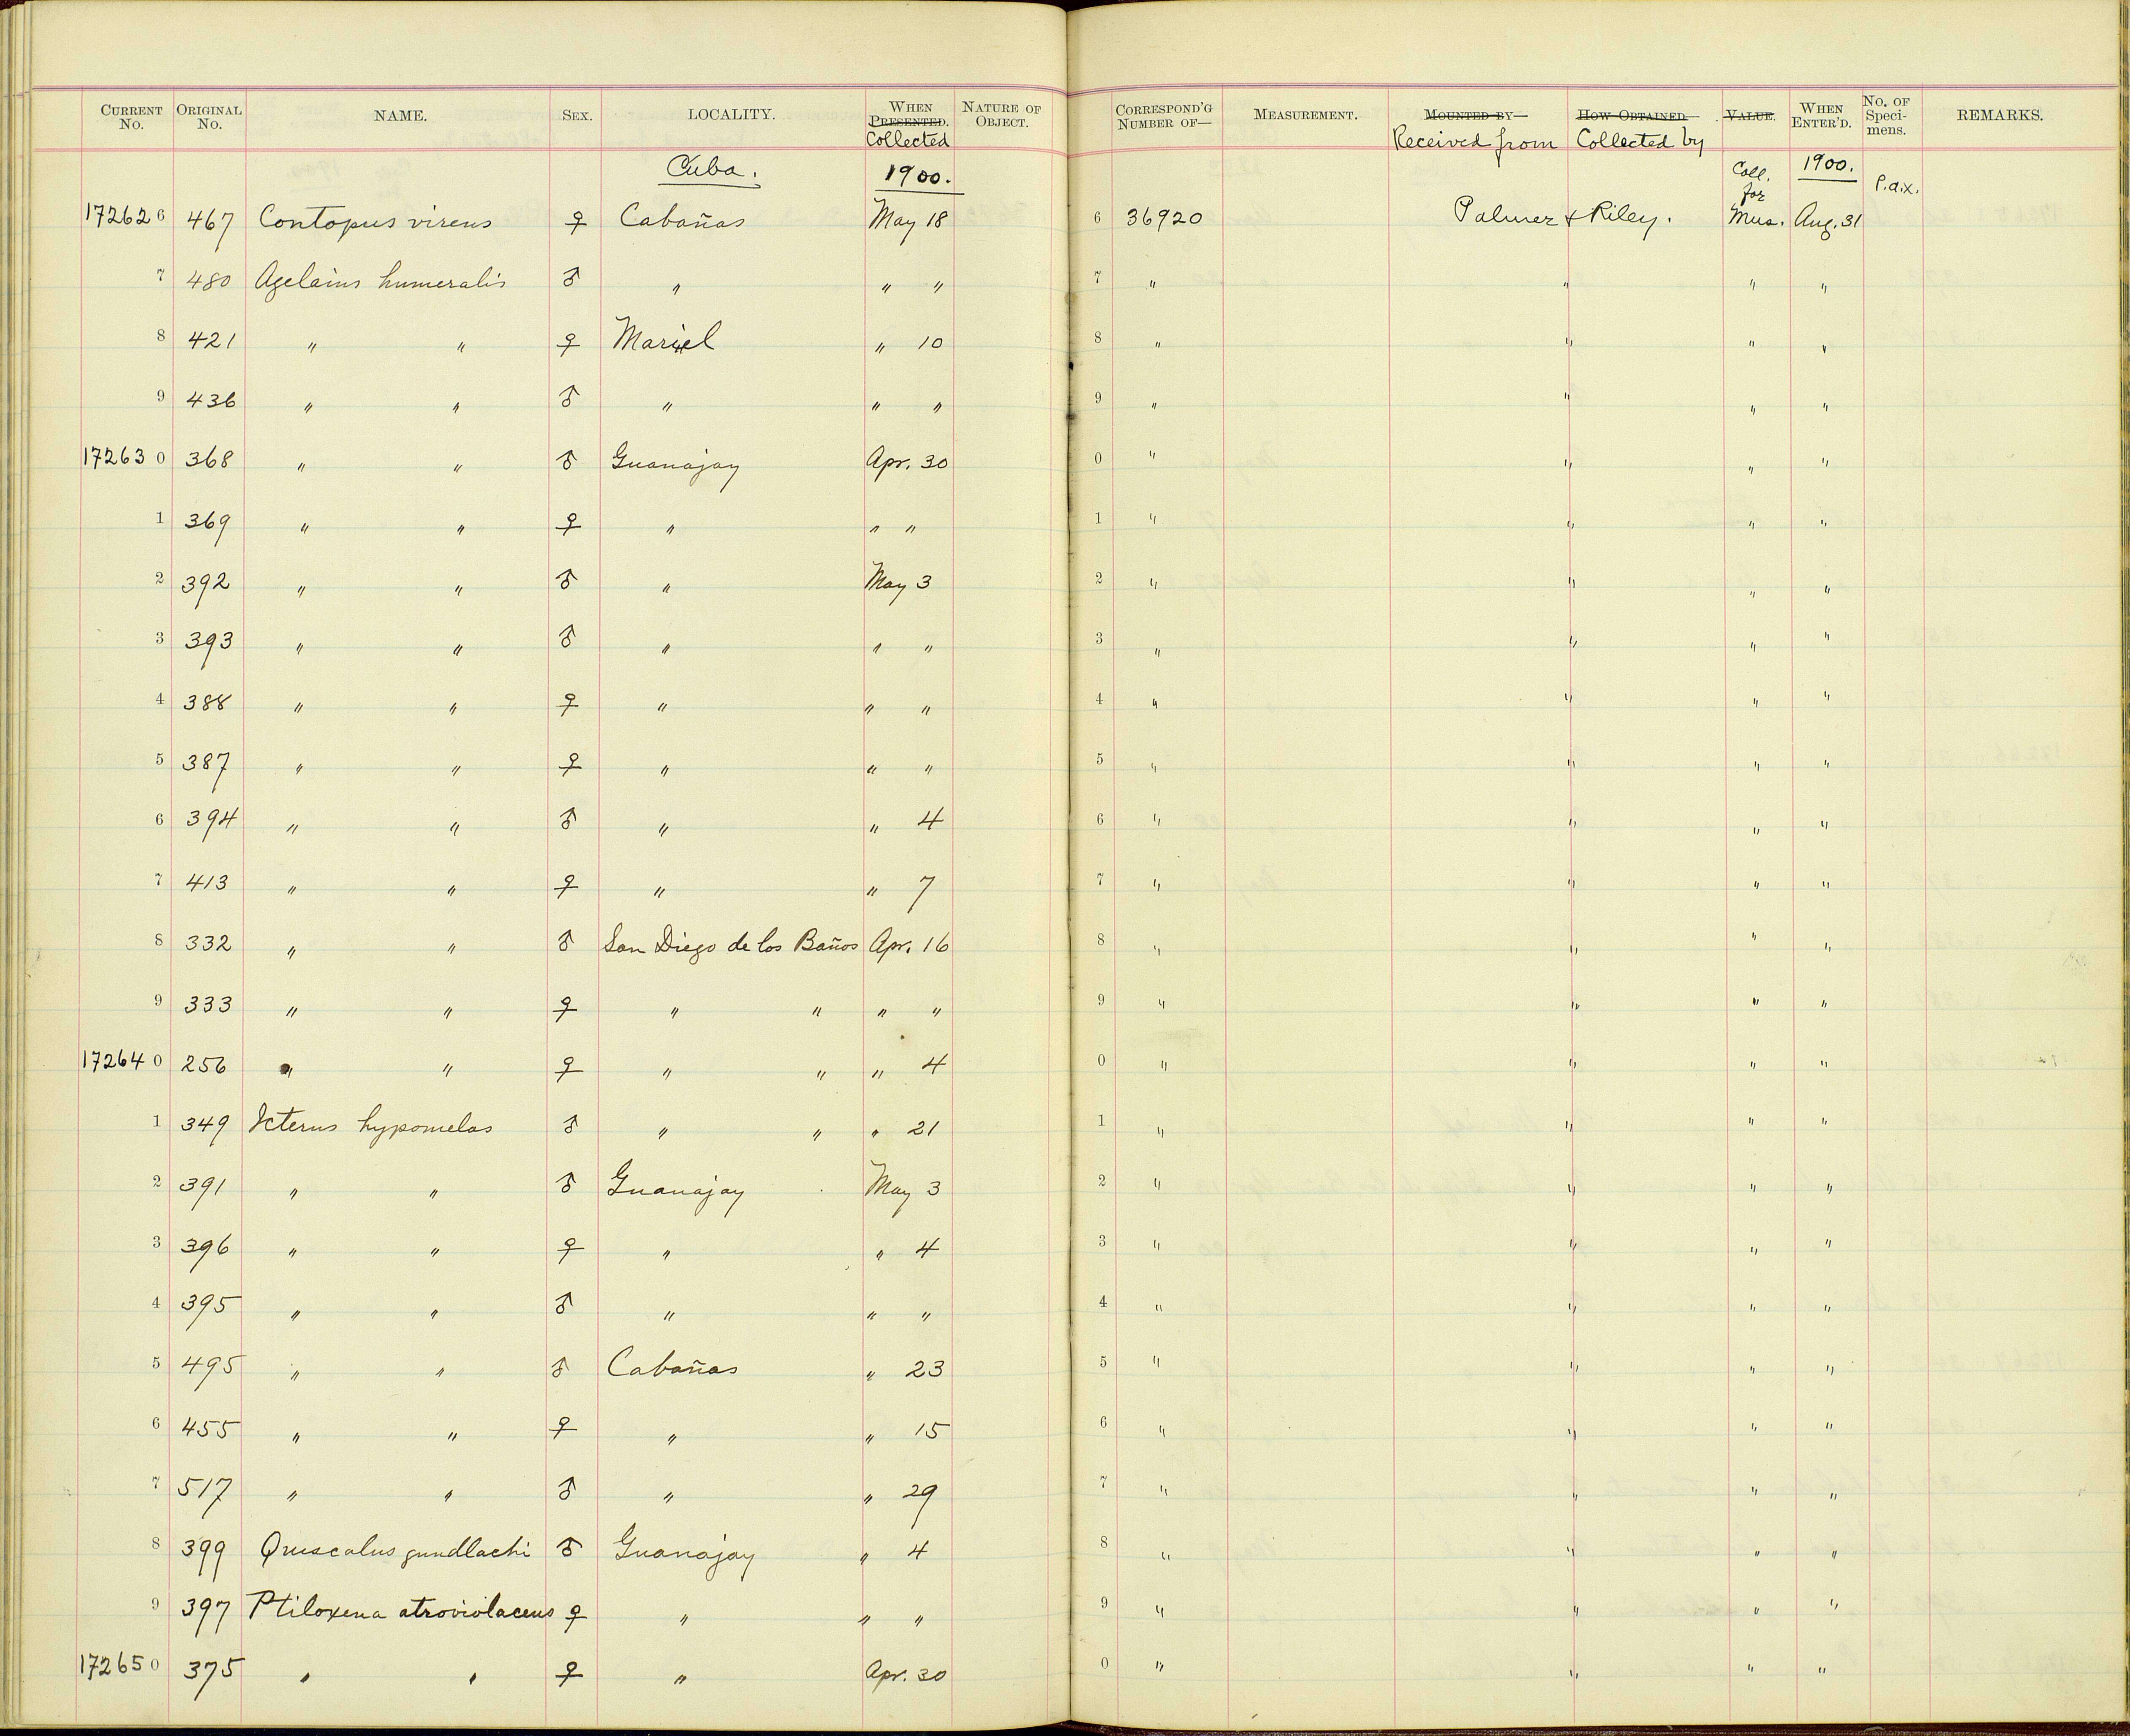 CURRENT No. ORIGINAL No. NAME. SEX. LOCALITY. WHEN PRESENTED. Collected NATURE OF OBJECT. CORRESPOND'G NUMBER OF— MEASUREMENT. MOUNTED BY— Received from HOW OBTAINED Collected by VALUE. WHEN ENTER'D. No. OF Specimens. REMARKS.
Cuba. 1900. Coll. for 1900. P.a.x.
172626 467 Contopus virens ♀ Cabañas May 18 6 36920 Palmer & Riley. Mus. Aug. 31
7 480 Agelaius humeralis ♂ " " " 7 " " " "
8 421 " " ♀ Mariel " 10 8 " " " "
9 436 " " ♂ " " " 9 " " " "
172630 368 " " ♂ Guanajay Apr. 30 0 " " " "
1 369 " " ♀ " " " 1 " " " "
2 392 " " ♂ " May 3 2 " " " "
3 393 " " ♂ " " " 3 " " " "
4 388 " " ♀ " " " 4 " " " "
5 387 " " ♀ " " " 5 " " " "
6 394 " " ♂ " " 4 6 " " " "
7 413 " " ♀ " " 7 7 " " " "
8 332 " " ♂ San Diego de los Baños Apr. 16 8 " " " "
9 333 " " ♀ " " " " 9 " " " "
172640 256 " " ♀ " " " 4 0 " " " "
1 349 Icterus hypomelas ♂ " " " 21 1 " " " "
2 391 " " ♂ Guanajay May 3 2 " " " "
3 396 " " ♀ " " 4 3 " " " "
4 395 " " ♂ " " " 4 " " " "
5 495 " " ♂ Cabañas " 23 5 " " " "
6 455 " " ♀ " " 15 6 " " " "
7 517 " " ♂ " " 29 7 " " " "
8 399 Quiscalus gundlachi ♂ Guanajay " 4 8 " " " "
9 397 Ptiloxena atroviolaceus ♀ " " " 9 " " " "
172650 375 " " ♀ " Apr. 30 0 " " " "